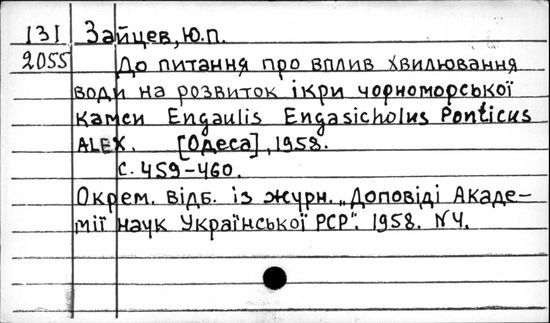 131 Зайцев, Ю.П.
2055 До питання про вплив хвилювання
води на розвиток ікри чорноморської
камси Engaulis Engasicholus Ponticus
ALEX. [Одеса], 1958.
с. 459-460.
Окрем. відб. із журн. „Доповіді Акаде-
мії наук Української РСР". 1958. N4.